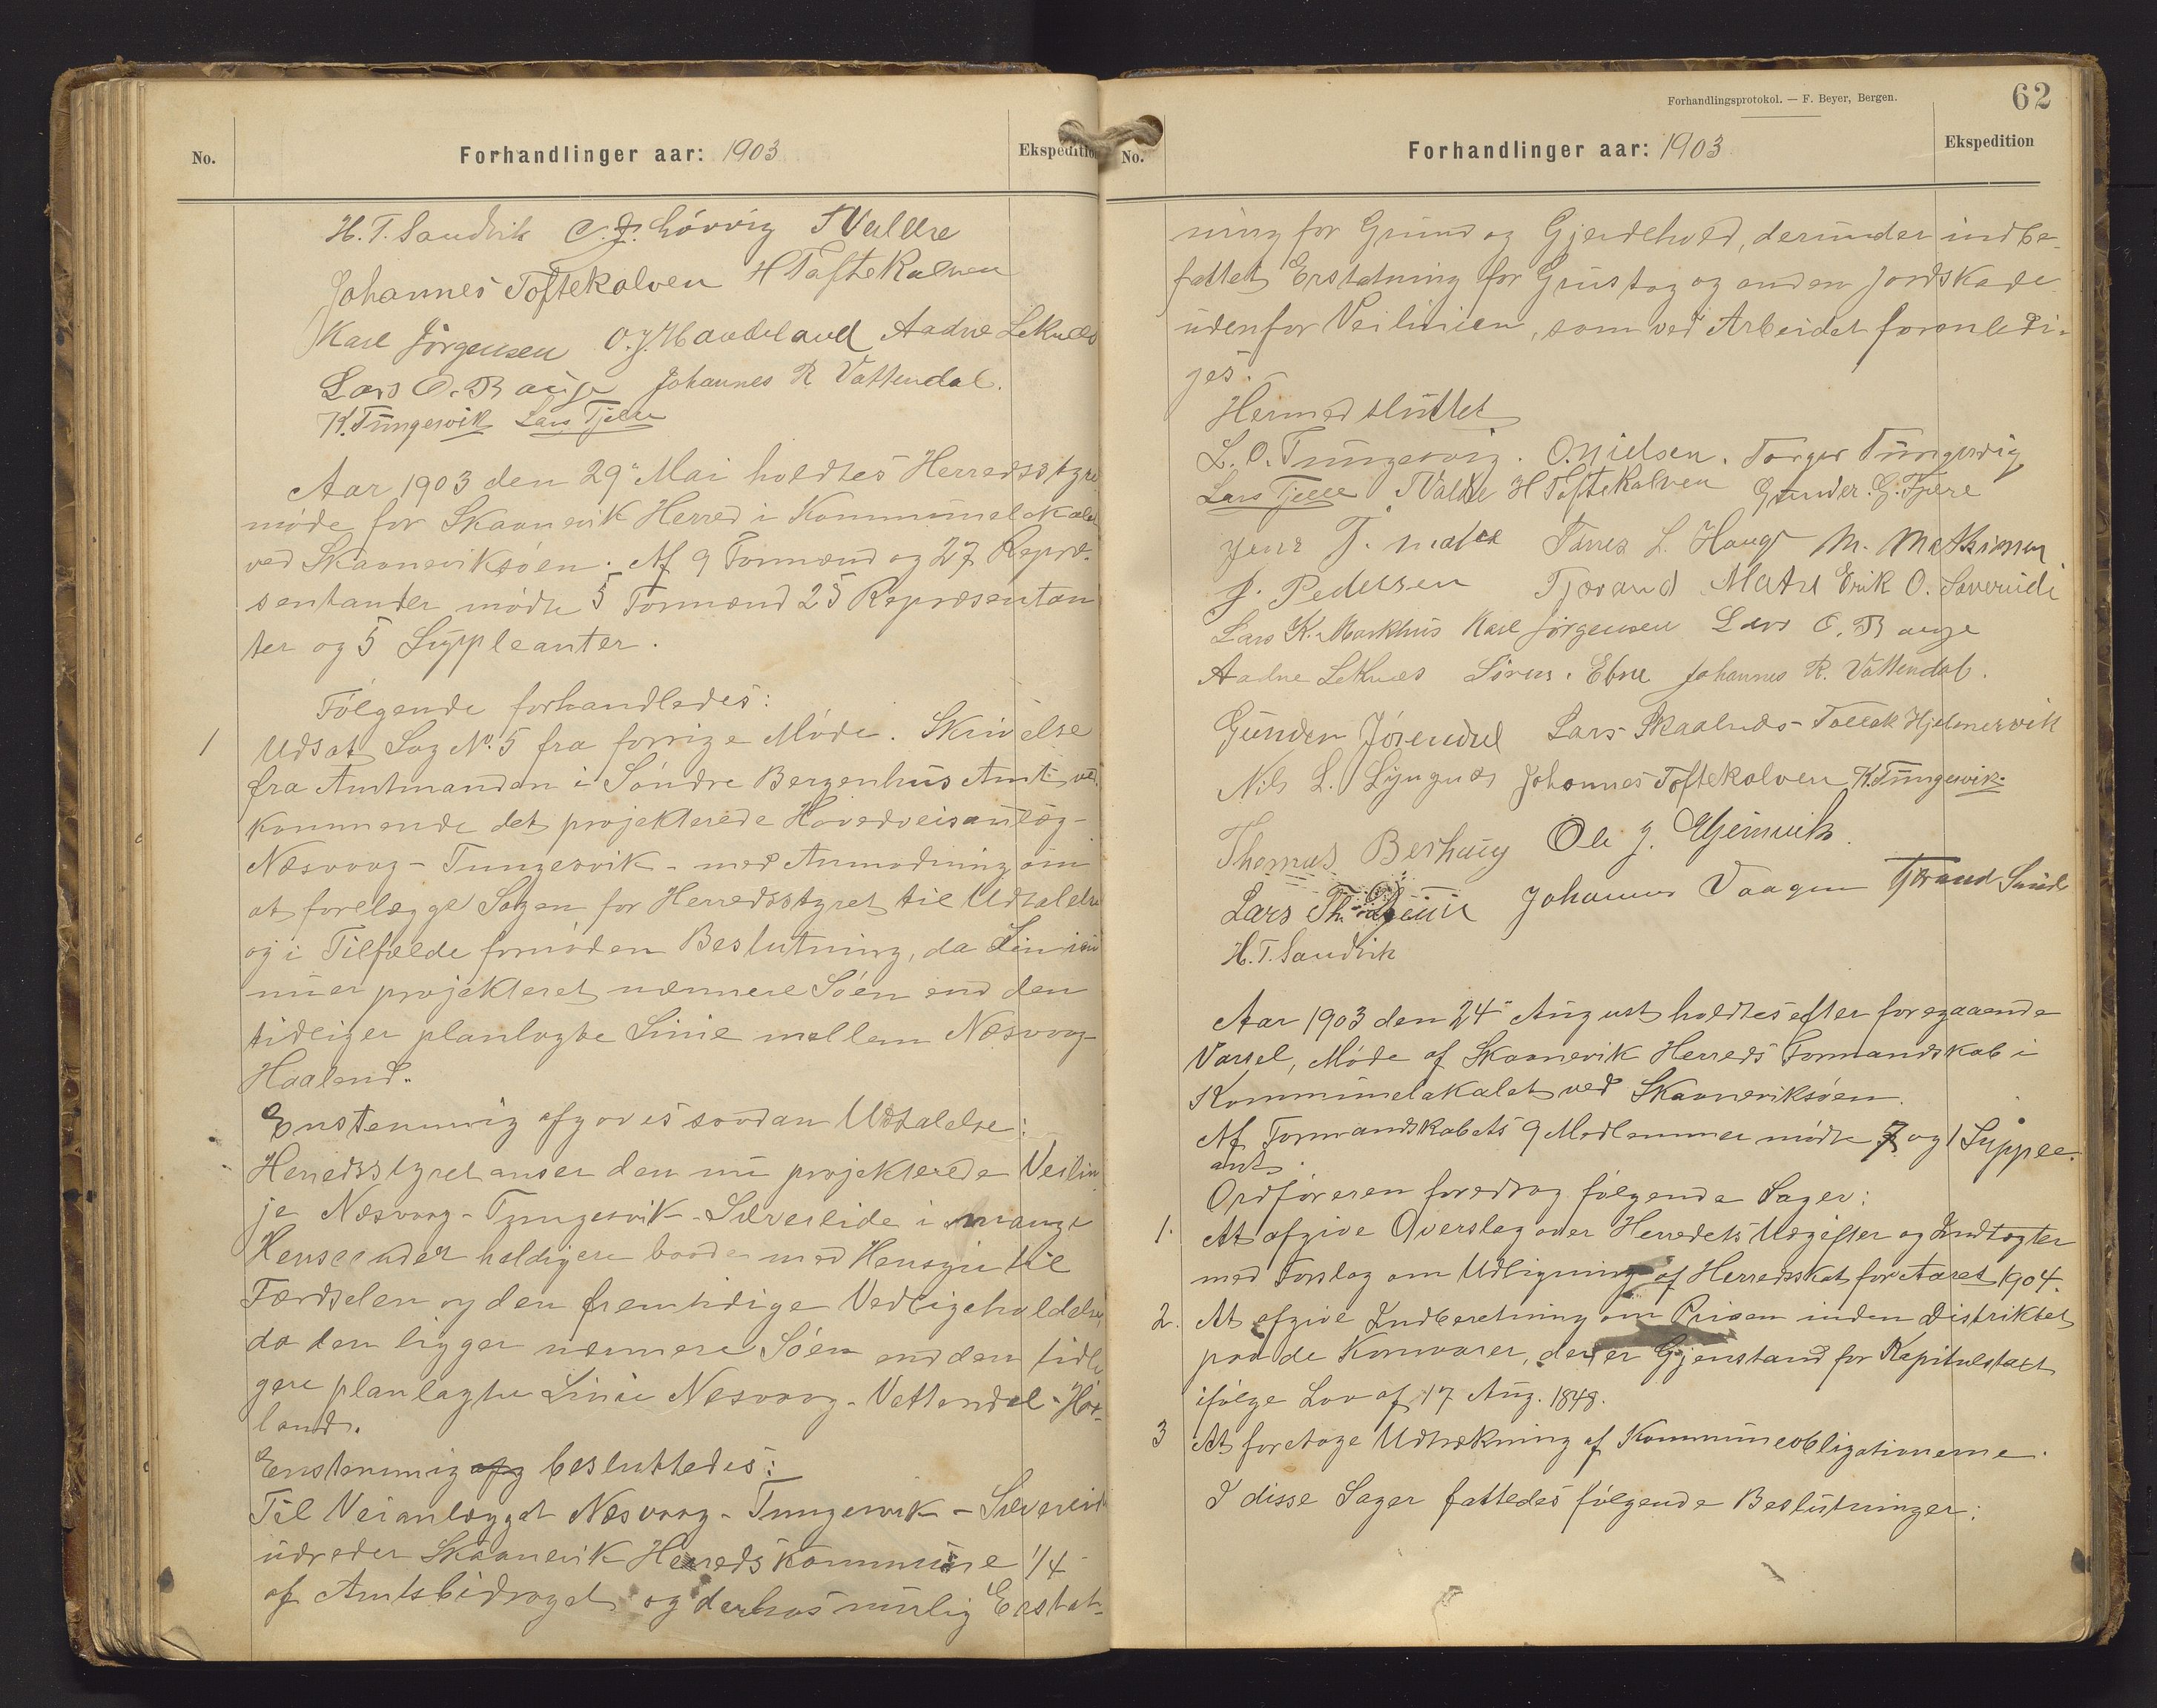 No.
Forhandlinger aar: 1903
Ekspedition
H. T. Sandvik C. J. Løvvig T Valdre
Johannes Toftekalven H Toftekalven
Karl Jørgensen O. J. Mandeland Aadne Leknæs
Lars O. Bauge Johannes R Vattendal.
K. Tungesvik Lars Tjelle
Aar 1903 den 29" Mai holdtes Herredsstyre
møde for Skaanevik Herred i Kommunelokalet
ved Skaaneviksøen. Af 9 Formænd og 27 Repræ-
sentanter mødte 5 Formænd 25 Repræsentan
ter og 5 Suppleanter.
Følgende forhandledes:
1 Udsat Sag No. 5 fra forrige Møde. Skrivelse
fra Amtmanden i Søndre Bergenhus Amt ved
kommende det projekterede Hovedveisanlæg-
Næsvaag - Tungesvik - med Anmodning om
at forelægge Sagen for Herredsstyret til Udtalelse
og i Tilfælde fornøden Beslutning, da Linien
nu er projekteret nærmere Søen end den
tidligere planlagte Linie mellem Næsvaag-
Haaland.
Enstemmig afgoves saadan Udtalelse:
Herredsstyret anser den nu projekterede Veilin
je Næsvaag - Tungesvik - Sævereide i mange
Henseender heldigere baade med Hensyn til
Færdselen og den fremtidige Vedligeholdelse
da den ligger nærmere Søen end den tidli
gere planlagte Linie Næsvaag - Vattendal - Haa-
land.
Enstemmig afg besluttedes:
Til Veianlægget Næsvaag - Tungesvik - Sævereid
udreder Skaanevik Herredskommune 1/4
af Amtsbidraget og derhos mulig Erstat-
Forhandlingsprotokol. — F. Beyer, Bergen.
62
No.
Forhandlinger aar: 1903
Ekspedition
ning for Grund og Gjerdehold, derunder indbe-
fattet Erstatning for Grustag og anden Jordskade
udenfor Veilinien, som ved Arbeidet foranledi-
ges.
Hermed sluttet
L. O. Tungesvig. O. Nielsen. Torger Tungesvig
Lars Tjelle T Valdre H Toftekalven Gunder. G. Fjære
Jens J. Matre Tørres L. Haug M. Mathismen
J. Pedersen Tjerand Matre Erik O. Sævereide
Lars K. Markhus Karl Jørgensen Lars O. Bauge
Aadne Leknæs Søren. Ebne Johannes R. Vattendal.
Gunder Jøsendal Lars Skaalnæs Tollak Hjelmervik
Nils L. Lyngnæs Johannes Toftekalven K. Tungesvik
Thomas Berhaug Ole J. Ejeinvik.
Lars Th. Johannes Vaagen Tjerand Sunde
H. T. Sandvik
Aar 1903 den 24" August holdtes efter foregaaende
Varsel, Møde af Skaanevik Herreds Formandskab i
Kommunelokalet ved Skaaneviksøen.
Af Formandskabets 9 Medlemmer mødte 7 og 1 Supple-
ant.
Ordføreren foredrog følgende Sager:
1. At afgive Overslag over Herredets Udgifter og Indtægter
med Forslag om Udligning af Herredsskat for Aaret 1904.
2. At afgive Indberetning om Prisen inden Distriktet
paa de Kornvarer, der er Gjenstand for Kapitulstaxt
ifølge Lov af 17 Aug. 1848.
3 At foretage Udtrækning af Kommuneobligationerne.
I disse Sager fattedes følgende Beslutninger: